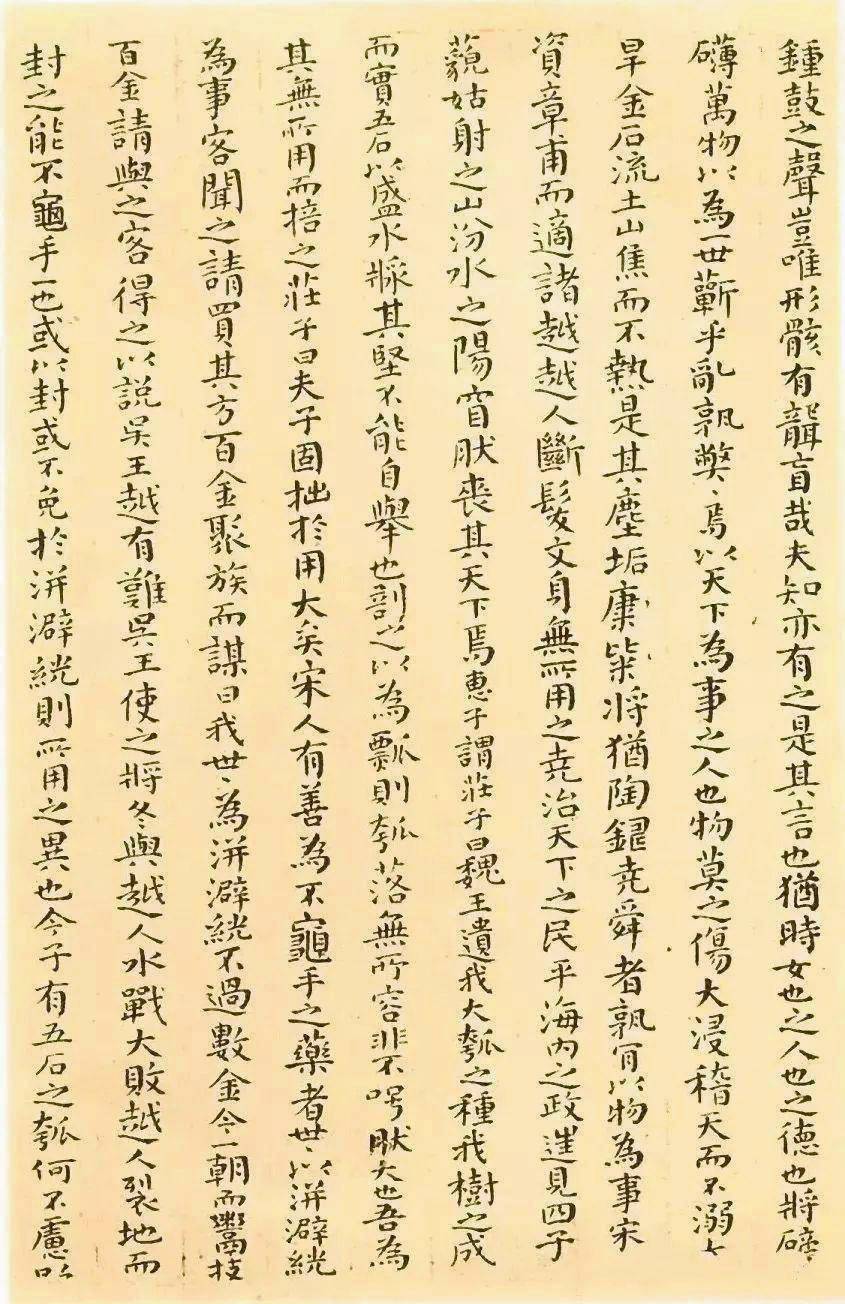 鍾鼓之聲豈唯形骸有聾盲哉夫知亦有之是其言也猶時女也之人也之德也將磅
礴萬物以為一世蘄乎亂孰弊〻焉以天下為事之人也物莫之傷大浸稽天而不溺大
旱金石流土山焦而不熱是其塵垢穅粃將猶陶鑄堯舜者孰肎以物為事宋
資章甫而適諸越越人斷髮文身無所用之堯治天下之民平海內之政進見四子
藐姑射之山汾水之陽窅然喪其天下焉惠子謂莊子曰魏王遺我大瓠之種我樹之成
而實五石以盛水漿其堅不能自舉也剖之以為瓢則瓠落無所容非不呺然大也吾為
其無所用而掊之莊子曰夫子固拙於用大矣宋人有善為不龜手之藥者世〻以洴澼絖
為事客聞之請買其方百金聚族而謀曰我世〻為洴澼絖不過數金今一朝而鬻技
百金請與之客得之以說吳王越有難吳王使之將冬與越人水戰大敗越人裂地而
封之能不龜手一也或以封或不免於洴澼絖則所用之異也今子有五石之瓠何不慮以